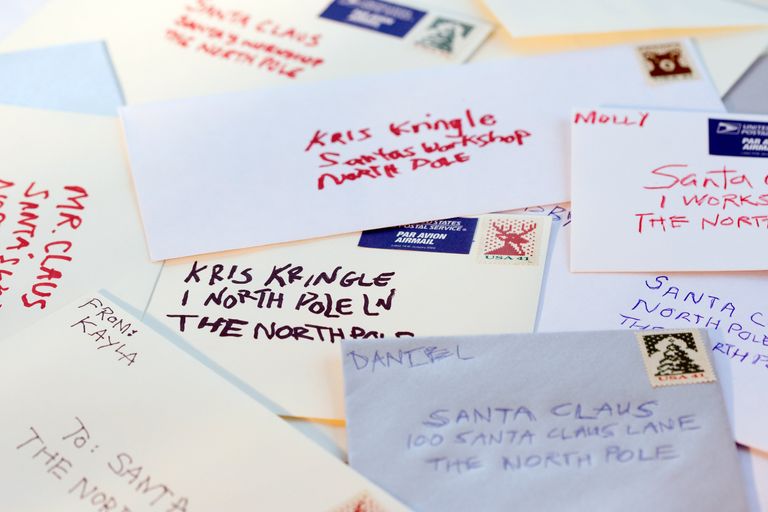 SANTA CLAUS
SANTA'S WORKSHOP
THE NORTH POLE
KRIS Kringle
Santas Workshop
NORTH POLE
MOLLY
UNITED
POSTAL
PAR A
AIRMA
Santa
1 WORKS
THE NORT
MR. CLAUS
SANTA'S
STATES
POSTAL SERVICE
PAR AVION
AIRMAIL
USA 41
KRIS KRINGLE
1 NORTH POLE LN
THE NORTH POLE
SANTA C
NORTH POLE
FROM:
KAYLA
TO: SANTA
THE NOR
DANIEL
USA 41
SANTA CLAUS
100 SANTA CLAUS LANE
THE NORTH POLE